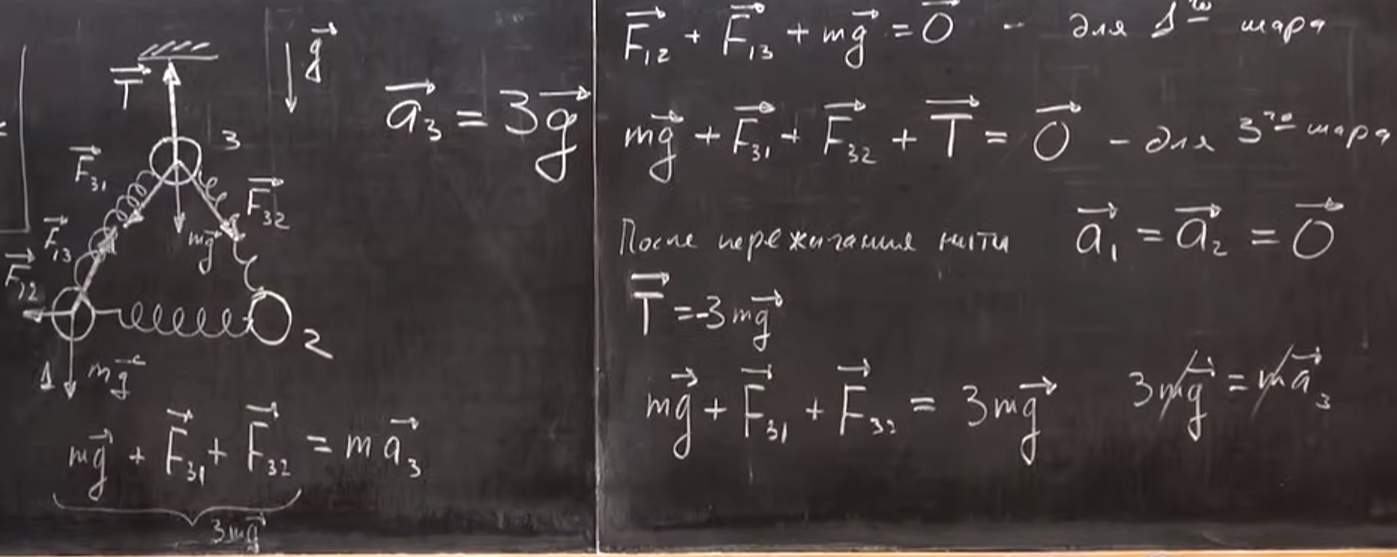 T⃗
g⃗
3
F⃗₃₁
F⃗₃₂
F⃗₁₃
mg⃗
F⃗₁₂
1
2
mg⃗
a⃗₃ = 3g⃗
mg⃗ + F⃗₃₁ + F⃗₃₂ = ma⃗₃
3mg⃗
F⃗₁₂ + F⃗₁₃ + mg⃗ = 0⃗ - для 1го шара
mg⃗ + F⃗₃₁ + F⃗₃₂ + T⃗ = 0⃗ - для 3го шара
После пережигания нити a⃗₁ = a⃗₂ = 0⃗
T⃗ = -3mg⃗
mg⃗ + F⃗₃₁ + F⃗₃₂ = 3mg⃗ 3mg⃗ = ma⃗₃